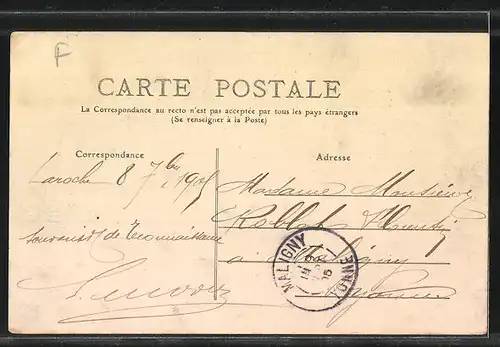 F
CARTE POSTALE
La Correspondance au recto n'est pas acceptée par tous les pays étrangers
(Se renseigner à la Poste)
Correspondance
Laroche 8 7bre 1905
souvenir de
Adresse
Madame
à Maligny
Yonne
MALIGNY
YONNE